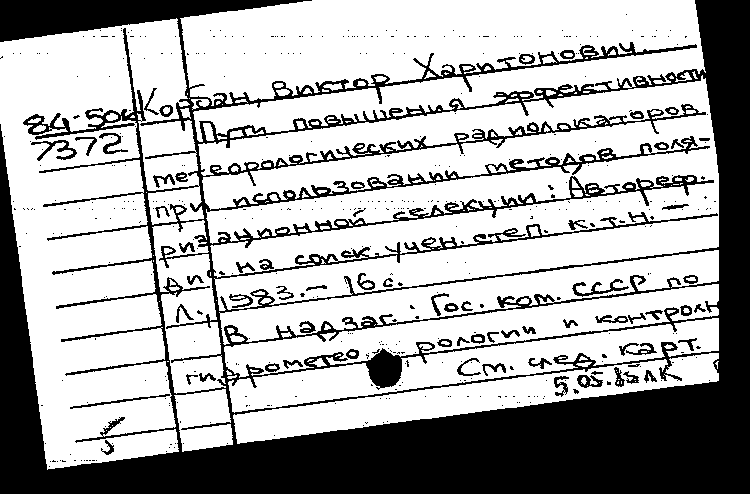 Корбан, Виктор Харитонович.
84-50к
7372
Пути повышения эффективности
метеорологических радиолокаторов
при использовании методов поля-
ризационной селекции: Автореф.
дис. на соиск. учен. степ. к.т.н. —
Л., 1983. – 16 с.
В надзаг.: Гос. ком. СССР по
гидрометеорологии и контролю
См. след. карт.
5.05.85 ЛК